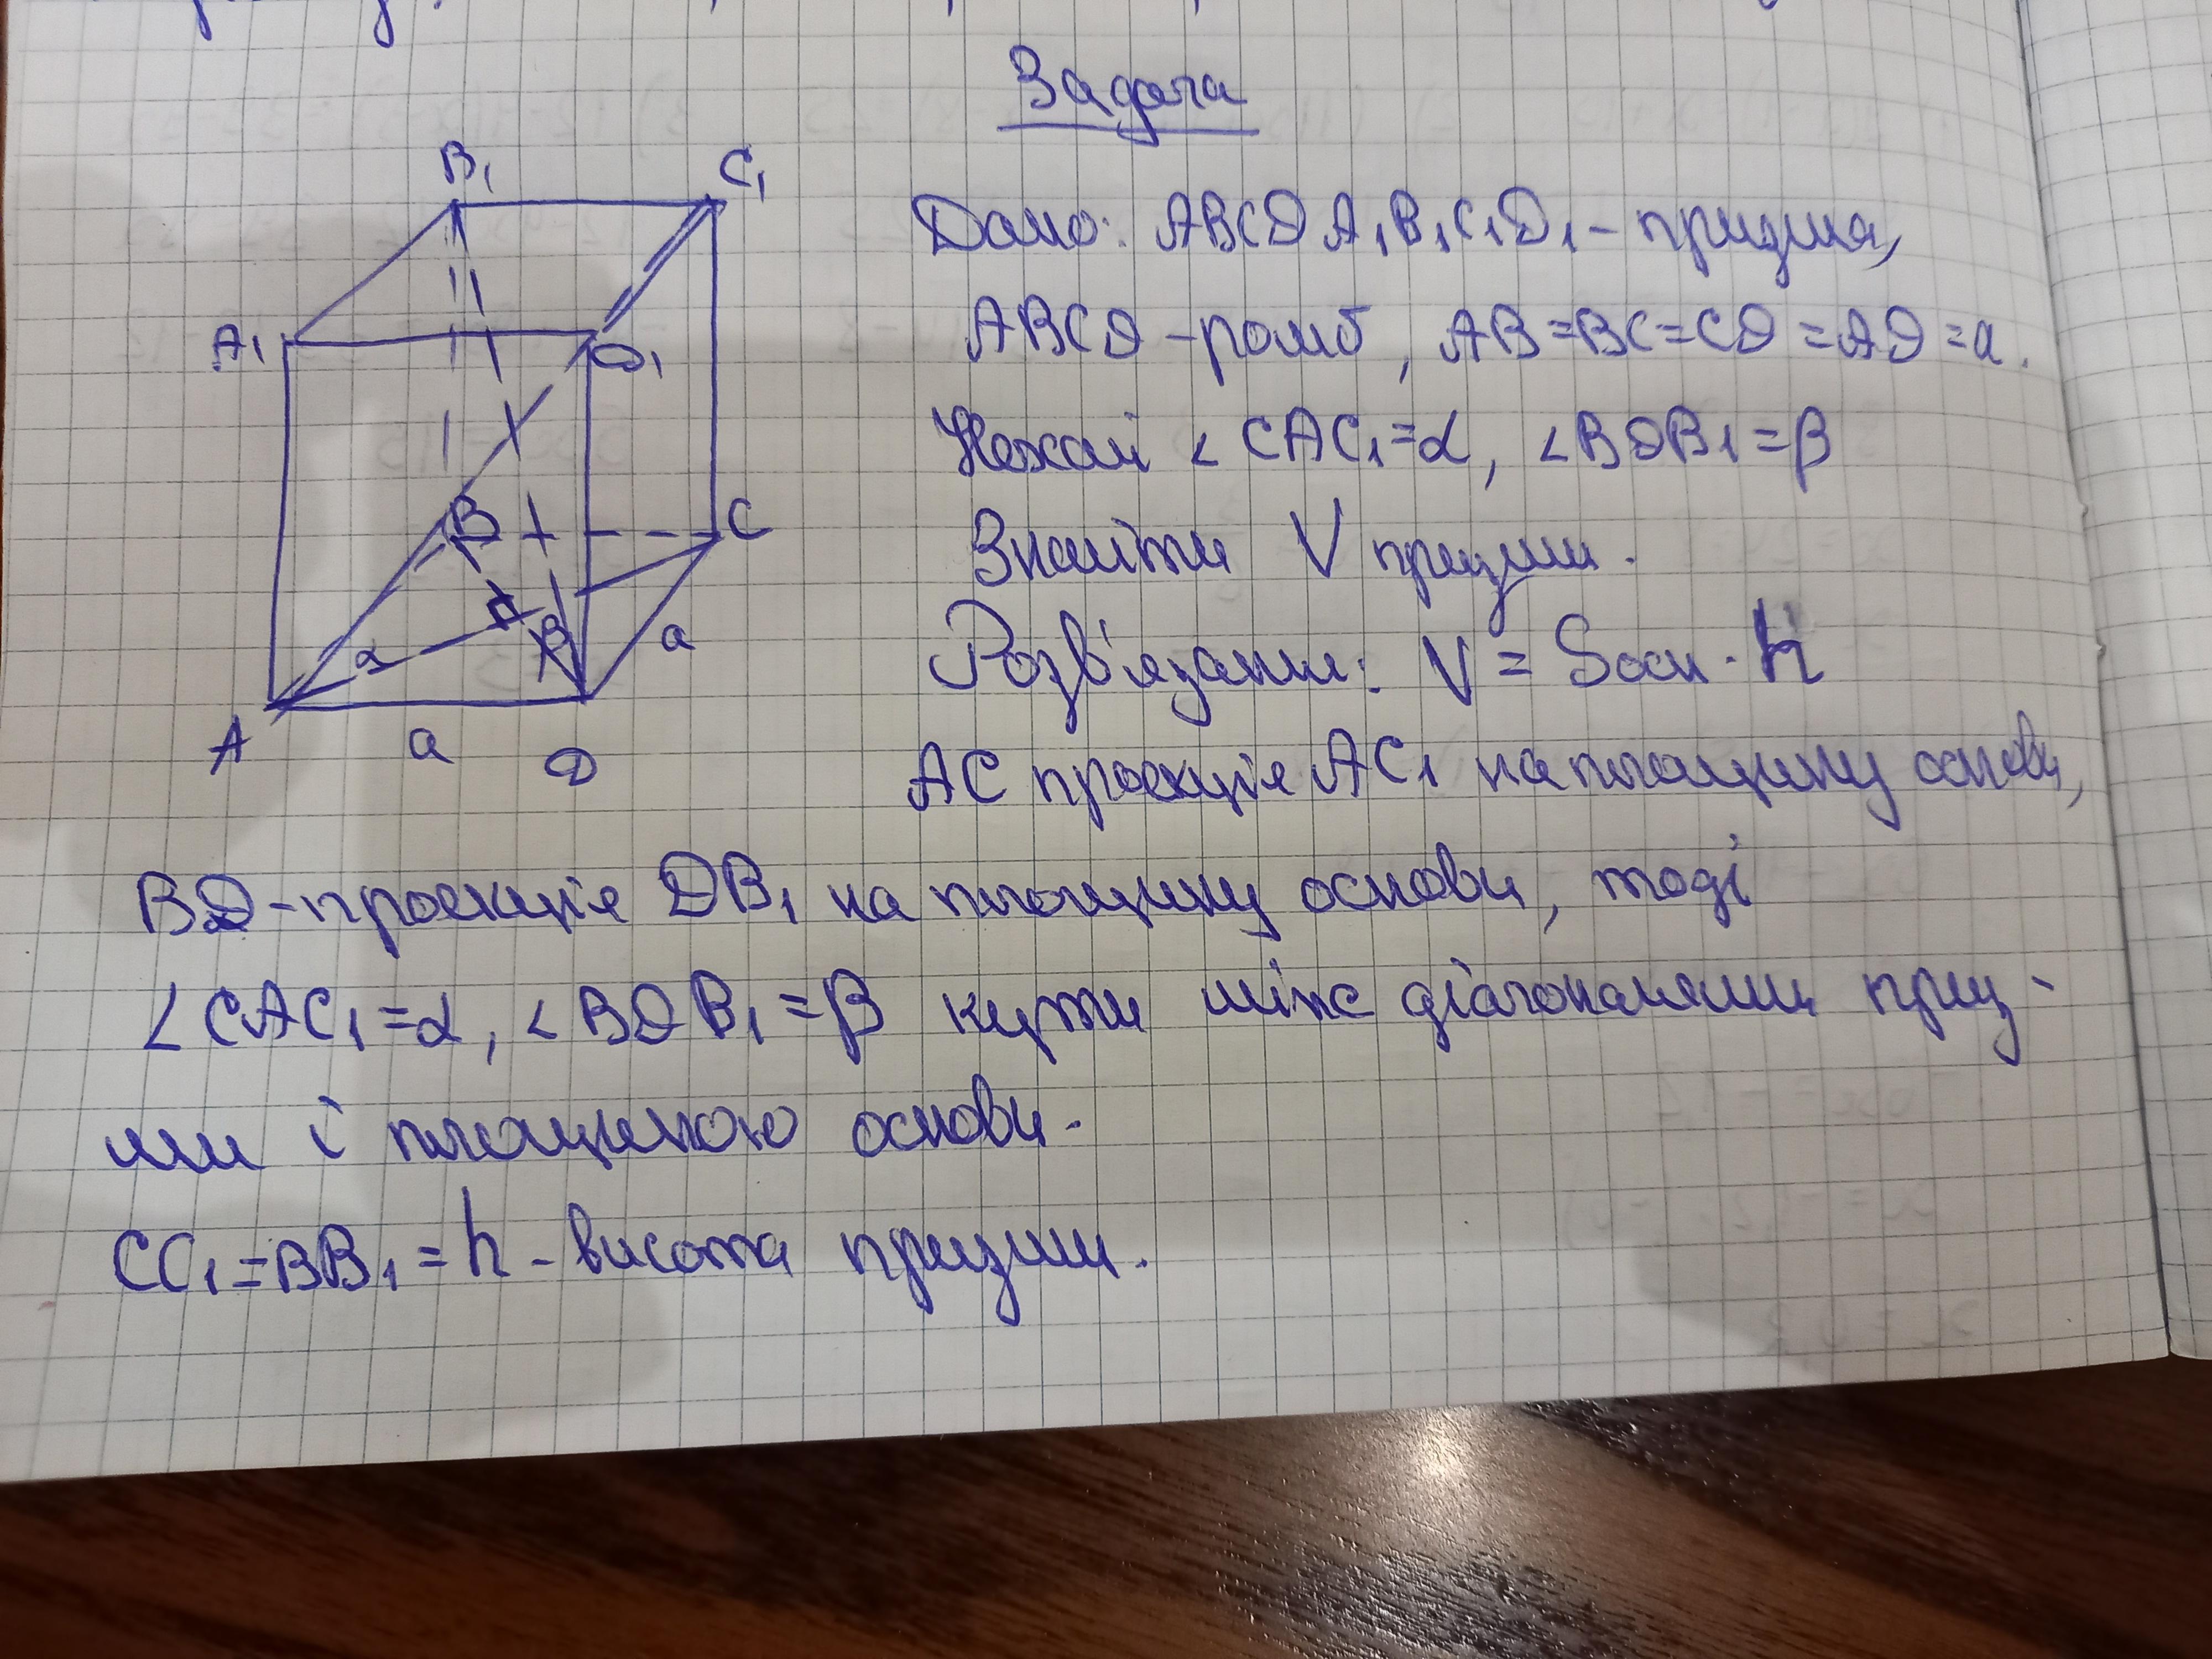 Задача
B₁
C₁
A₁
D₁
B
C
α
β
a
A
a
D
Дано: ABCDA₁B₁C₁D₁ - призма,
ABCD - ромб, AB=BC=CD=AD=a.
Нехай ∠CAC₁=α, ∠BDB₁=β
Знайти V призми.
Розв'язання: V = Sосн · h
AC проекція AC₁ на площину основи,
BD - проекція DB₁ на площину основи, тоді
∠CAC₁=α, ∠BDB₁=β кути між діагоналями приз-
ми і площиною основи.
CC₁=BB₁=h - висота призми.